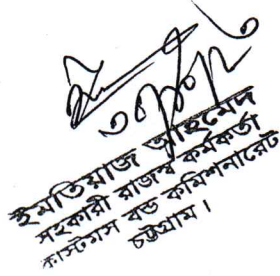 ইমতিয়াজ আহমেদ
সহকারী রাজস্ব কর্মকর্তা
কাস্টমস বন্ড কমিশনারেট
চট্টগ্রাম।